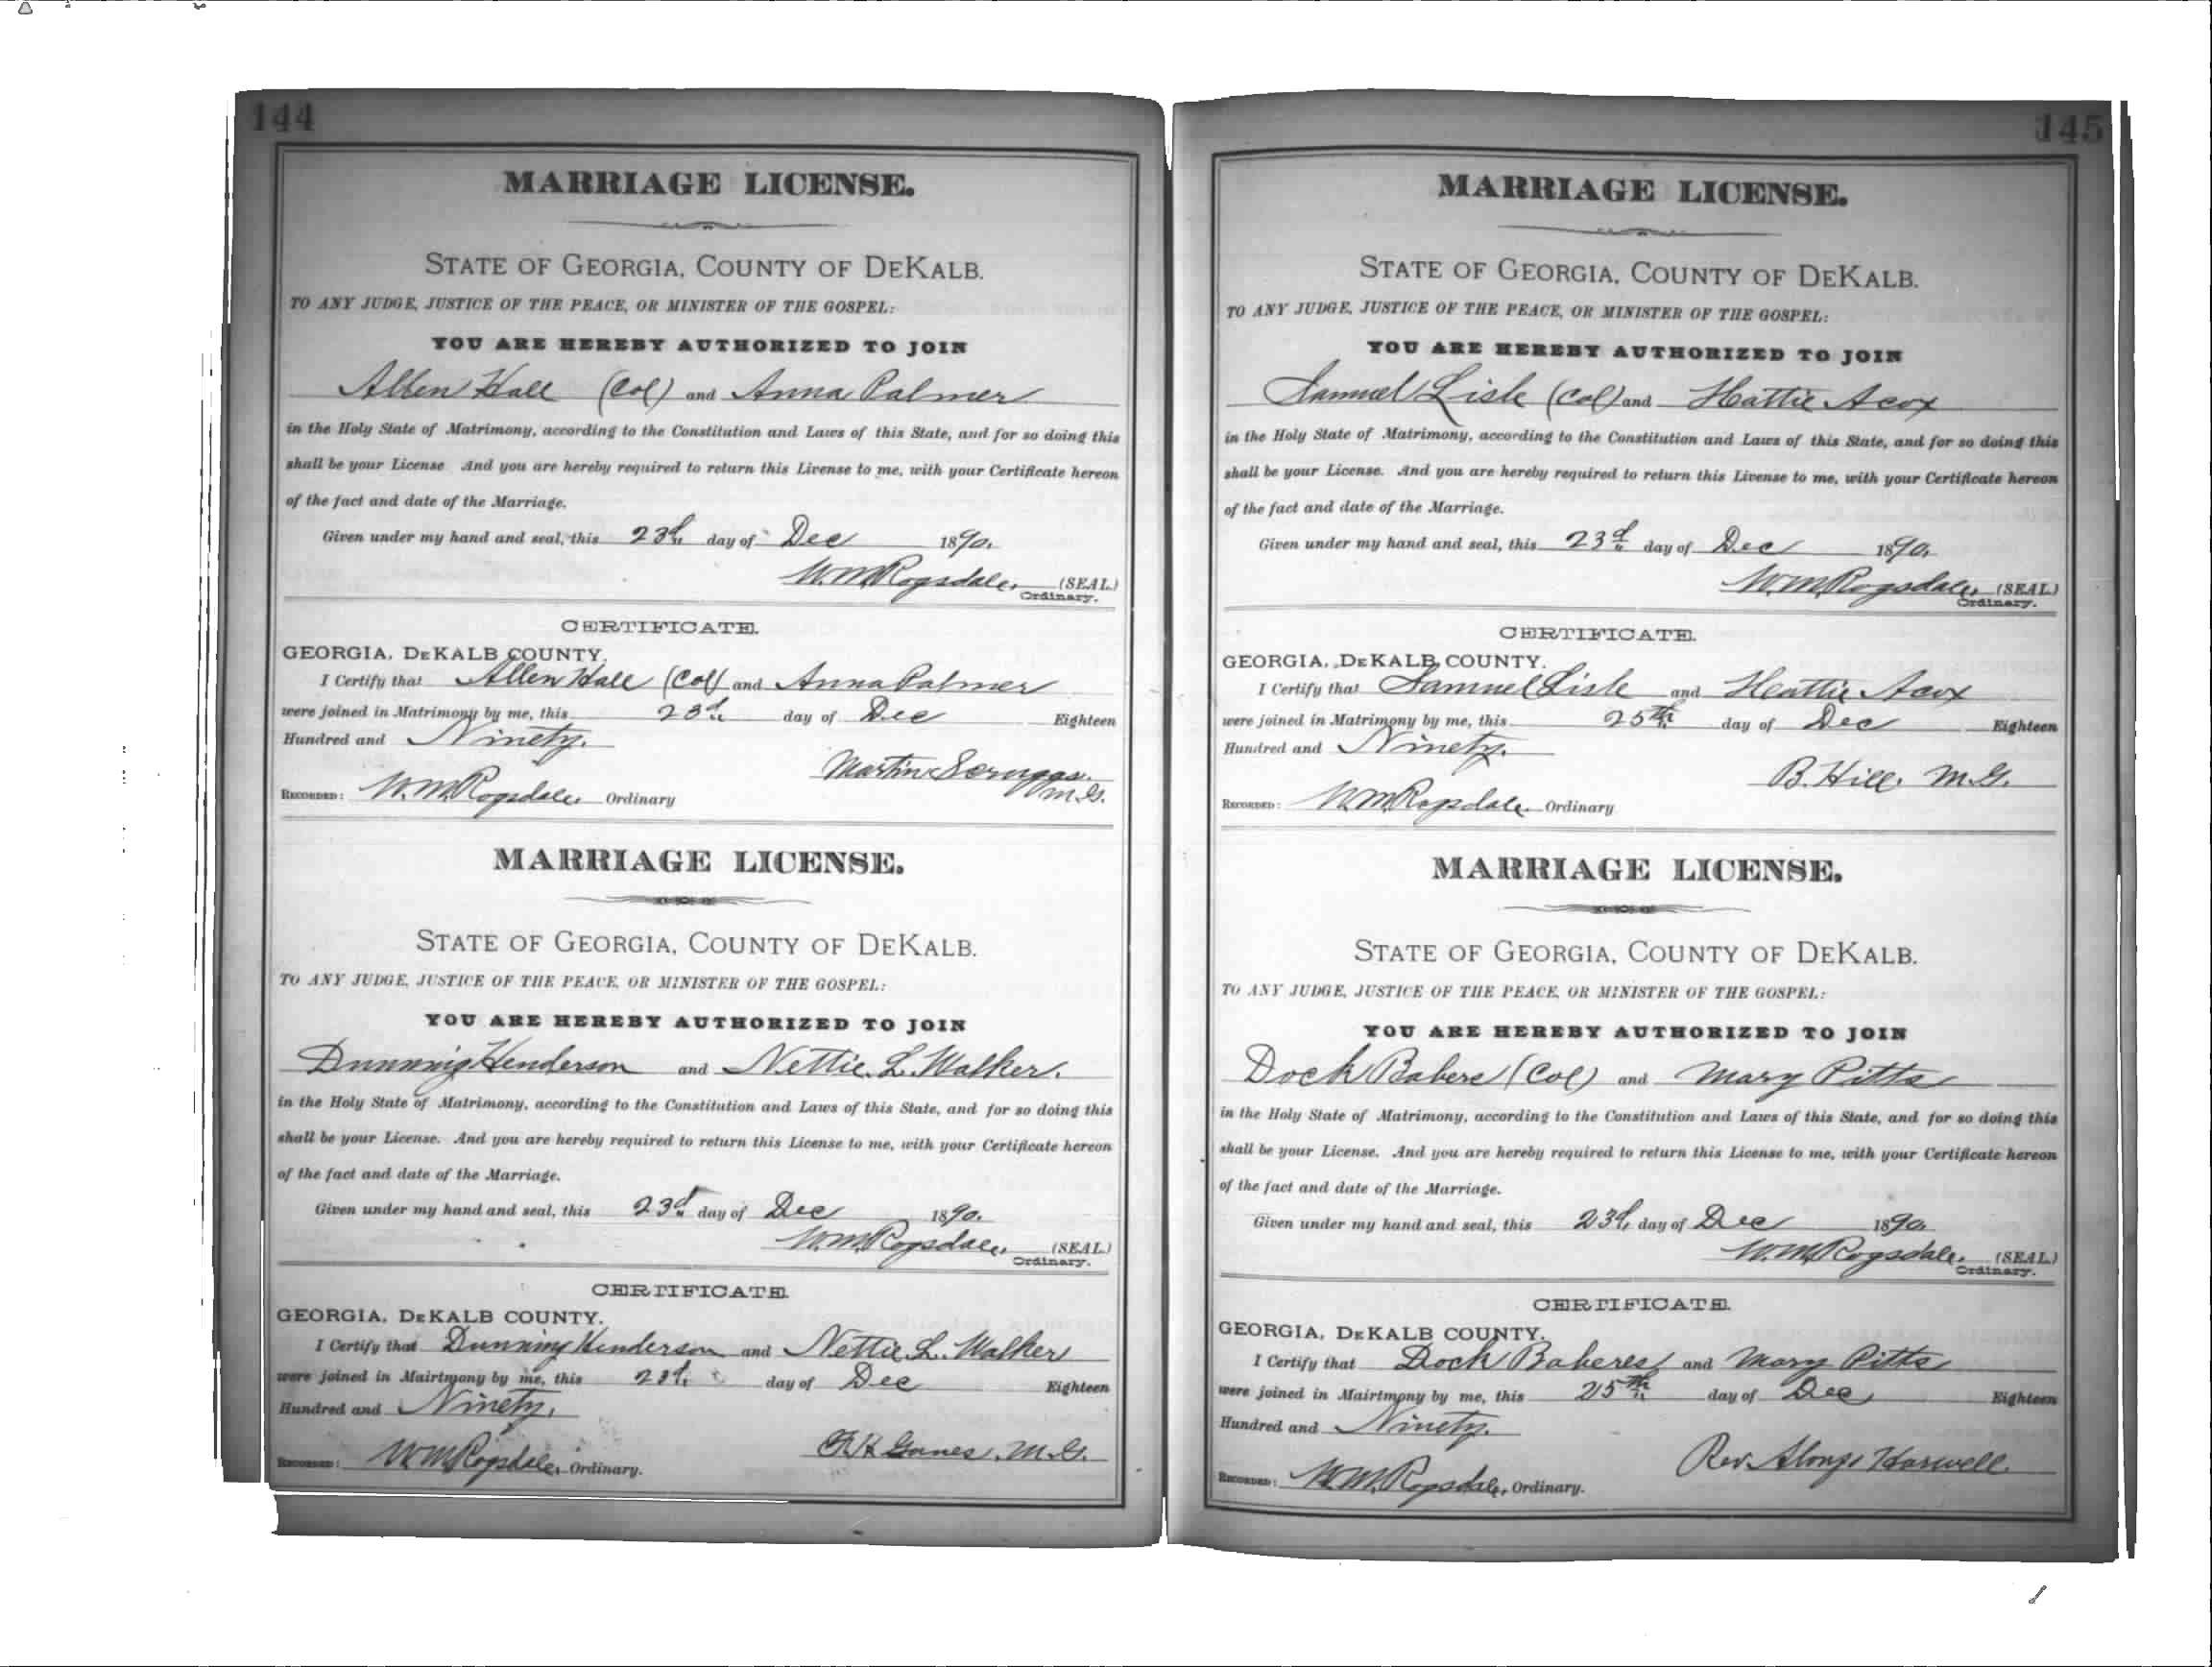 144
MARRIAGE LICENSE.
STATE OF GEORGIA, COUNTY OF DEKALB.
TO ANY JUDGE, JUSTICE OF THE PEACE, OR MINISTER OF THE GOSPEL:
YOU ARE HEREBY AUTHORIZED TO JOIN
Allen Hall (Col) and Anna Palmer
in the Holy State of Matrimony, according to the Constitution and Laws of this State, and for so doing this
shall be your License And you are hereby required to return this License to me, with your Certificate hereon
of the fact and date of the Marriage.
Given under my hand and seal, this 23d day of Dec 1890.
W.M. Ragsdale. (SEAL.)
Ordinary.
CERTIFICATE.
GEORGIA, DEKALB COUNTY.
I Certify that Allen Hall (Col) and Anna Palmer
were joined in Matrimony by me, this 23d day of Dec Eighteen
Hundred and Ninety.
Martin Scruggs.
M.G.
RECORDED: W.M. Ragsdale, Ordinary
MARRIAGE LICENSE.
STATE OF GEORGIA, COUNTY OF DEKALB.
TO ANY JUDGE, JUSTICE OF THE PEACE, OR MINISTER OF THE GOSPEL:
YOU ARE HEREBY AUTHORIZED TO JOIN
Dunning Henderson and Nettie L. Walker.
in the Holy State of Matrimony, according to the Constitution and Laws of this State, and for so doing this
shall be your License. And you are hereby required to return this License to me, with your Certificate hereon
of the fact and date of the Marriage.
Given under my hand and seal, this 23d day of Dec 1890.
W.M. Ragsdale, (SEAL.)
Ordinary.
CERTIFICATE.
GEORGIA, DEKALB COUNTY.
I Certify that Dunning Henderson and Nettie L. Walker
were joined in Mairtmony by me, this 23d day of Dec Eighteen
Hundred and Ninety.
M.G.
RECORDED: W.M. Ragsdale, Ordinary.
145
MARRIAGE LICENSE.
STATE OF GEORGIA, COUNTY OF DEKALB.
TO ANY JUDGE, JUSTICE OF THE PEACE, OR MINISTER OF THE GOSPEL:
YOU ARE HEREBY AUTHORIZED TO JOIN
Samuel Lisle (Col) and Hattie Acox
in the Holy State of Matrimony, according to the Constitution and Laws of this State, and for so doing this
shall be your License. And you are hereby required to return this License to me, with your Certificate hereon
of the fact and date of the Marriage.
Given under my hand and seal, this 23d day of Dec 1890.
W.M. Ragsdale, (SEAL.)
Ordinary.
CERTIFICATE.
GEORGIA, DEKALB COUNTY.
I Certify that Samuel Lisle and Heattie Acox
were joined in Matrimony by me, this 25th day of Dec Eighteen
Hundred and Ninety.
B. Hill. M.G.
RECORDED: W.M. Ragsdale, Ordinary
MARRIAGE LICENSE.
STATE OF GEORGIA, COUNTY OF DEKALB.
TO ANY JUDGE, JUSTICE OF THE PEACE, OR MINISTER OF THE GOSPEL:
YOU ARE HEREBY AUTHORIZED TO JOIN
Dock Babers (Col) and Mary Pitts
in the Holy State of Matrimony, according to the Constitution and Laws of this State, and for so doing this
shall be your License. And you are hereby required to return this License to me, with your Certificate hereon
of the fact and date of the Marriage.
Given under my hand and seal, this 23d, day of Dec 1890
W.M. Ragsdale. (SEAL.)
Ordinary.
CERTIFICATE.
GEORGIA, DEKALB COUNTY.
I Certify that Dock Baberes and Mary Pitts
were joined in Mairtmony by me, this 25th day of Dec Eighteen
Hundred and Ninety.
Rev. Alonzo Harwell.
RECORDED: W.M. Ragsdale, Ordinary.